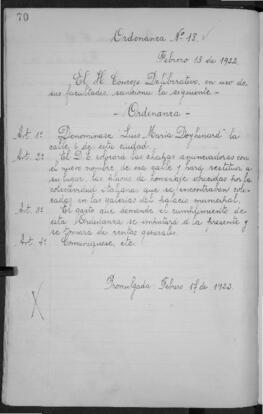 70
Ordenanza Nº 18.
Febrero 13 de 1922.
El H. Concejo Deliberativo, en uso de
sus facultades, sanciona la siguiente -
- Ordenanza -
Art. 1º Denominase "Luis Maria Doyhenard" la
calle 6 de esta ciudad.
Art. 2º El D.E. colocará las chapas anunciadoras con
el nuevo nombre de esa calle y hará restituir a
su lugar, las placas de homenaje ofrecidas por la
colectividad italiana que se encontraban colo-
cadas en las galerias del palacio municipal.
Art. 3º El gasto que demande el cumplimiento de
esta Ordenanza se imputará a la presente y
se tomará de rentas generales.
Art. 4º Comuniquese, etc.
Promulgada: Febrero 17 de 1922.